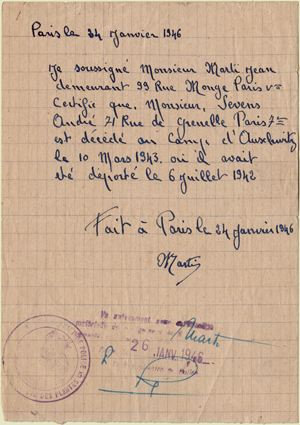 Paris le 24 Janvier 1946
Je soussigné Monsieur Marti Jean
demeurant 99 Rue Monge Paris Vᵉ
Certifie que, Monsieur, Sevens
André 71 Rue de Grenelle Paris 7ᵐᵉ
est décédé au Camp, d'Auschwitz
le 10 Mars 1943, où il avait
été déporté le 6 juillet 1942
Fait à Paris le 24 Janvier 1946
Marti
Vu
Marti
26 JANV 1946
DES PLANTES